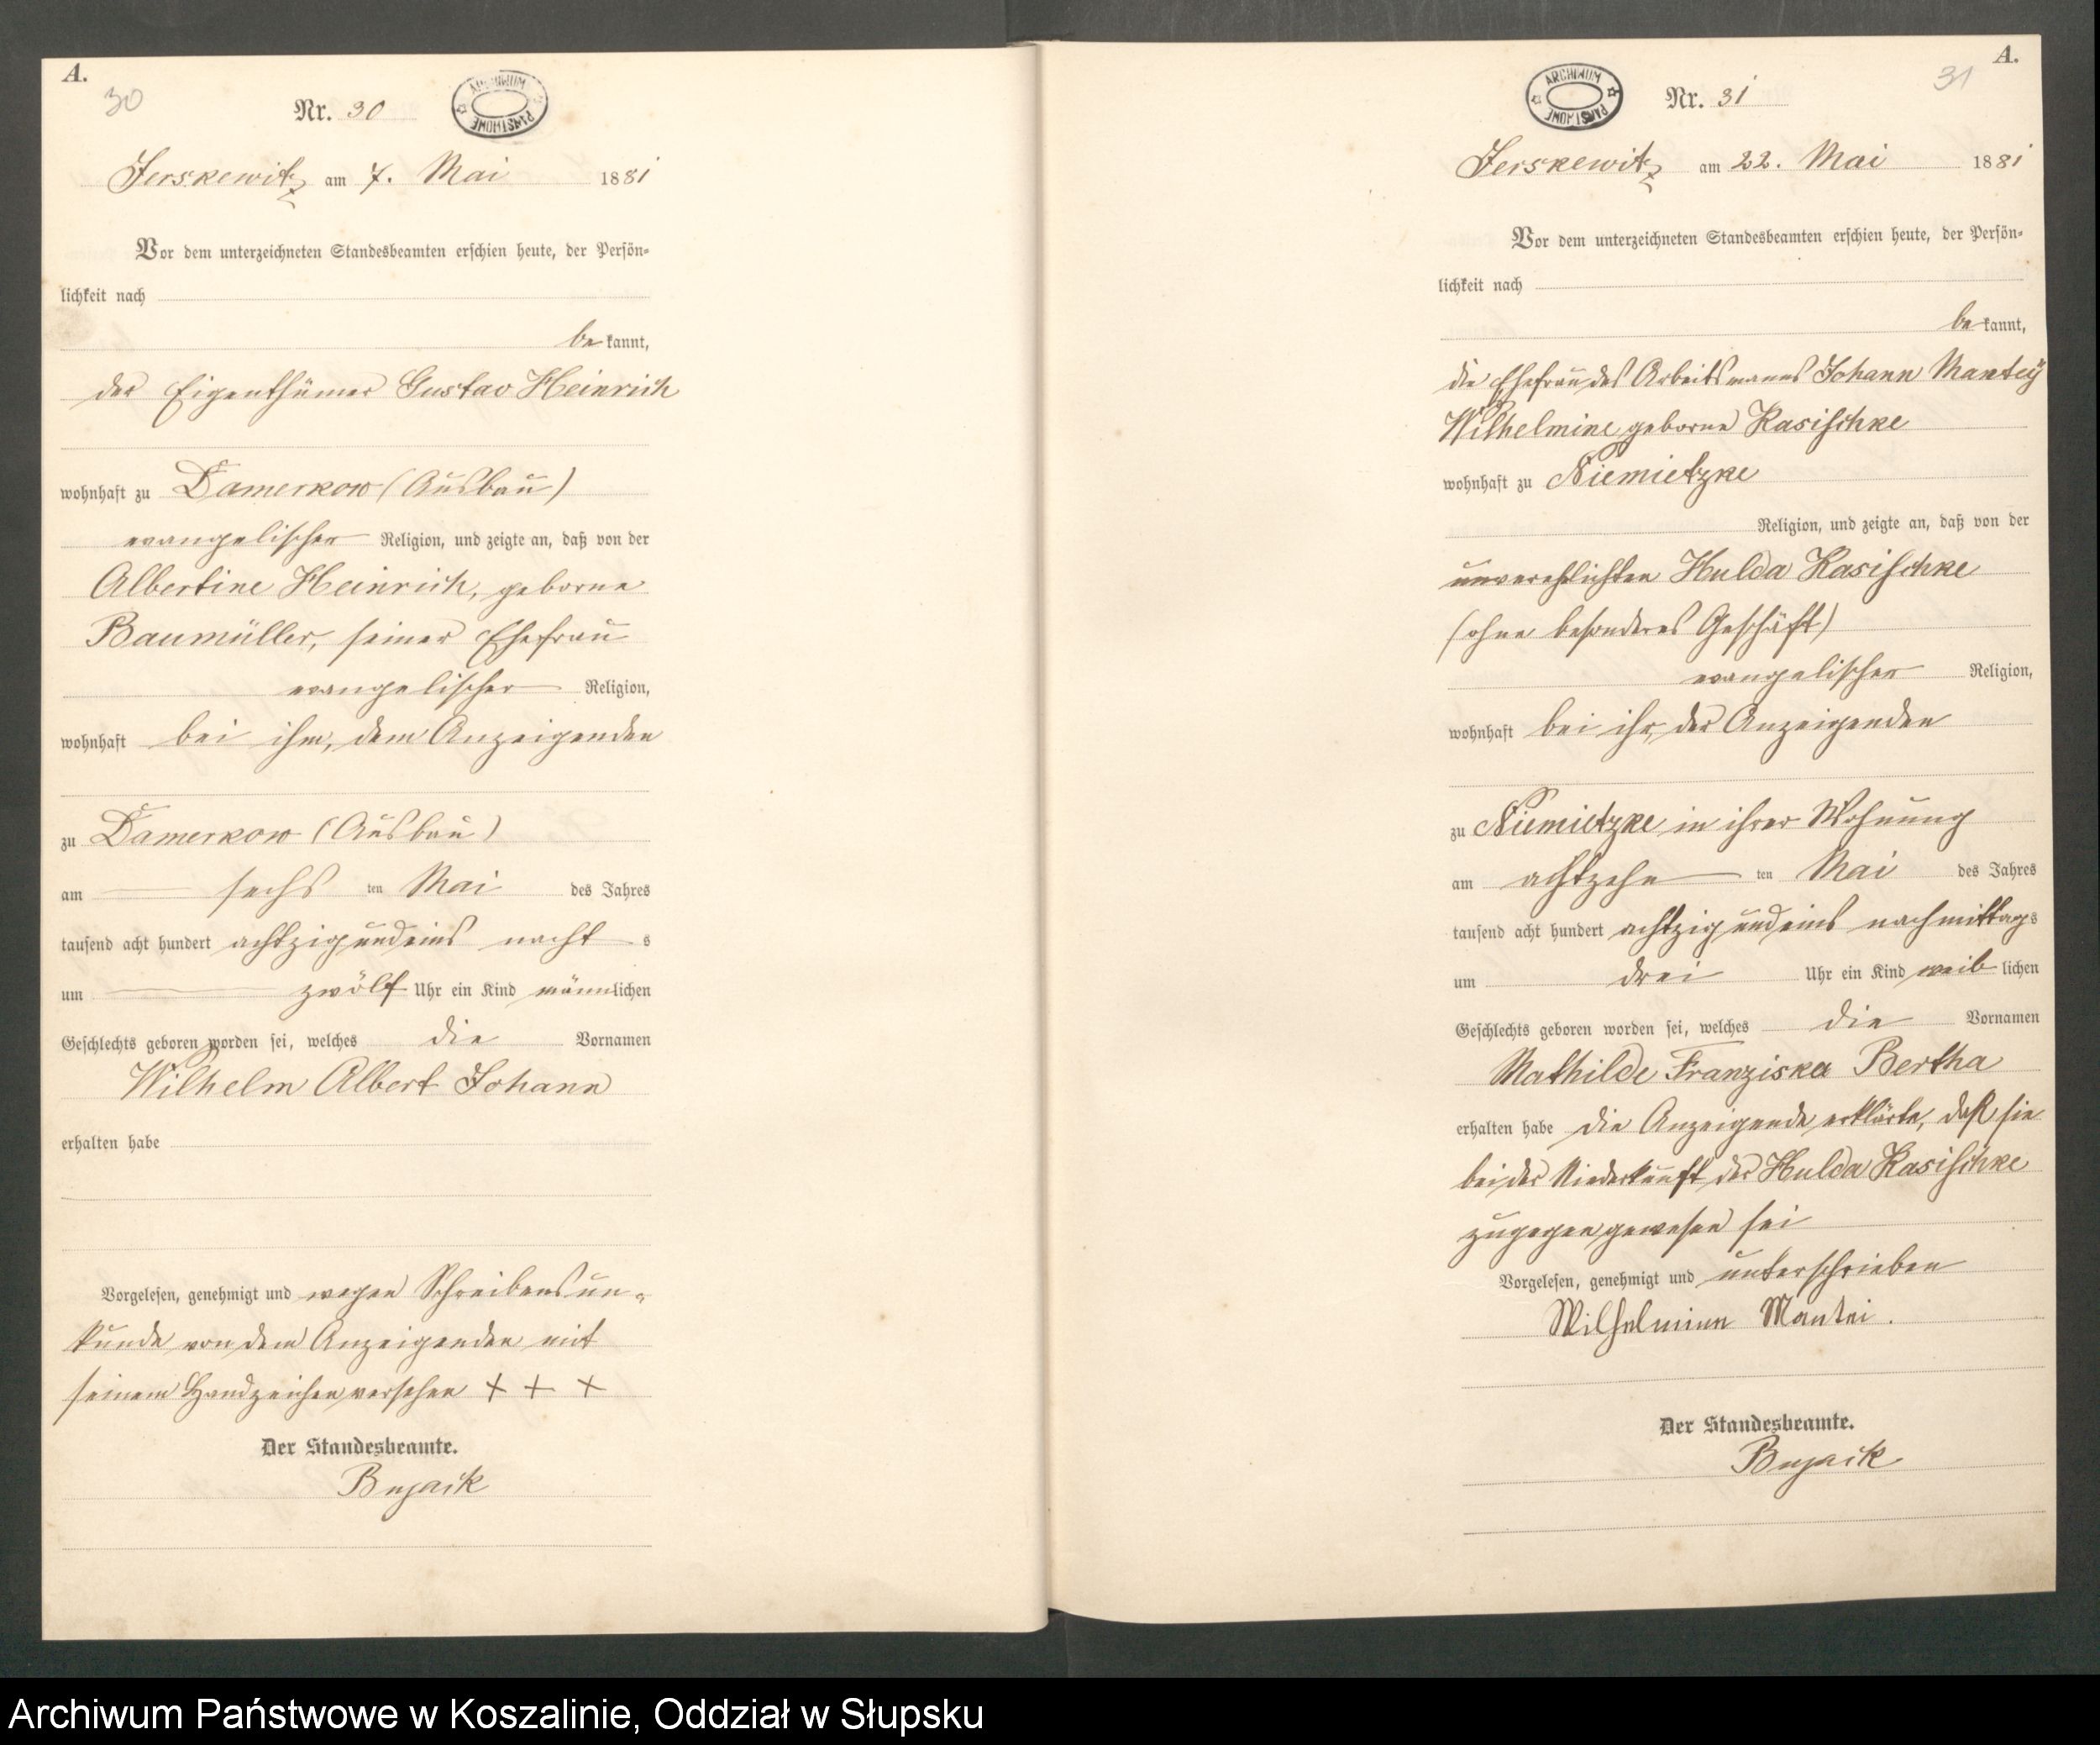 A.
30
Nr. 30
ARCHIWUM PAŃSTWOWE
Jerskewitz am 7. Mai 1881
Vor dem unterzeichneten Standesbeamten erschien heute, der Persön-
lichkeit nach
be kannt,
der Eigenthümer Gustav Heinrich
wohnhaft zu Damerkow (Ausbau)
evangelischer Religion, und zeigte an, daß von der
Albertine Heinrich, geborne
Baumüller, seiner Ehefrau
evangelischer Religion,
wohnhaft bei ihm, dem Anzeigenden
zu Damerkow (Ausbau)
am sechs ten Mai des Jahres
tausend acht hundert achtzig und eins nacht s
um zwölf Uhr ein Kind männlichen
Geschlechts geboren worden sei, welches die Vornamen
Wilhelm Albert Johann
erhalten habe
Vorgelesen, genehmigt und wegen Schreibensun-
kunde von dem Anzeigenden mit
seinem Handzeichen versehen + + +
Der Standesbeamte.
Bujack
A.
31
ARCHIWUM PAŃSTWOWE
Nr. 31
Jerskewitz am 22. Mai 1881
Vor dem unterzeichneten Standesbeamten erschien heute, der Persön-
lichkeit nach
be kannt,
die Ehefrau des Arbeitsmanns Johann Mantey
Wilhelmine geborne Kasischke
wohnhaft zu Niemietzke
Religion, und zeigte an, daß von der
unverehlichten Hulda Kasischke
(ohne besonderes Geschäft)
evangelischer Religion,
wohnhaft bei ihr, der Anzeigenden
zu Niemietzke in ihrer Wohnung
am achtzehn ten Mai des Jahres
tausend acht hundert achtzig und eins nachmittags
um drei Uhr ein Kind weib lichen
Geschlechts geboren worden sei, welches die Vornamen
Mathilde Franziska Bertha
erhalten habe die Anzeigende erklärte, daß sie
bei der Niederkunft der Hulda Kasischke
zugegen gewesen sei
Vorgelesen, genehmigt und unterschrieben
Wilhelmine Mantei.
Der Standesbeamte.
Bujack
Archiwum Państwowe w Koszalinie, Oddział w Słupsku